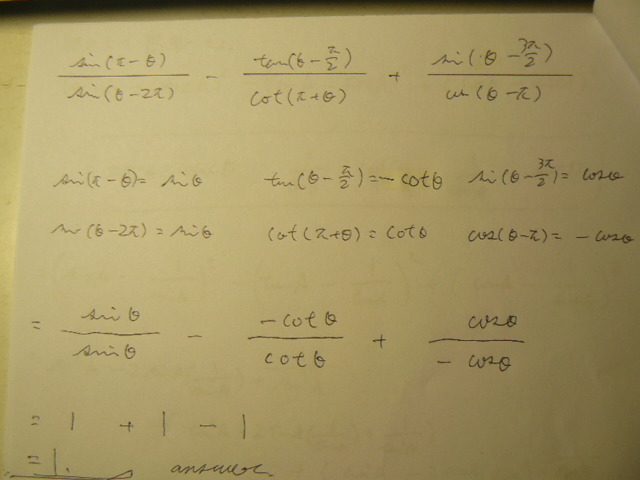 sin(π-θ)/sin(θ-2π) - tan(θ-π/2)/cot(π+θ) + sin(θ-3π/2)/cos(θ-π)
sin(π-θ)= sinθ tan(θ-π/2)=-cotθ sin(θ-3π/2)= cosθ
sin(θ-2π)= sinθ cot(π+θ)= cotθ cos(θ-π)= -cosθ
= sinθ/sinθ - -cotθ/cotθ + cosθ/-cosθ
= 1 + 1 - 1
= 1. answer.